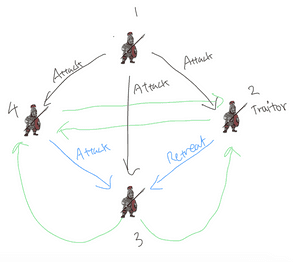 1
Attack
Attack
Attack
4
2
Traitor
Attack
Retreat
3